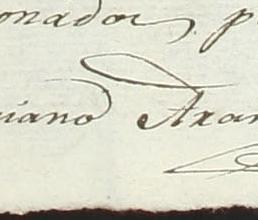 onador, p
iano Aran